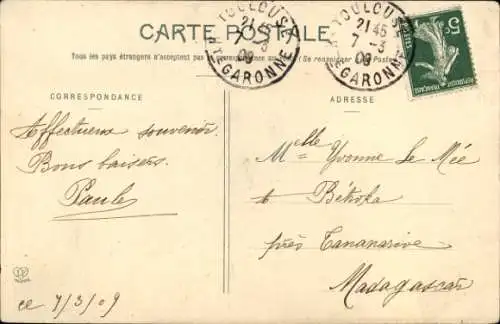 CARTE POSTALE
Tous les pays étrangers n'acceptent pas la correspondance au (Se renseigner
TOULOUSE
21 45
7 - 3
09
HTE GARONNE
TOULOUSE
21 45
7 - 3
09
HTE GARONNE
5c
CORRESPONDANCE
Affectueux souvenir.
Bons baisers.
Paule
ce 7/3/09
ADRESSE
Melle Yvonne Le Mée
à Bétoka
près Tananarive
Madagascar